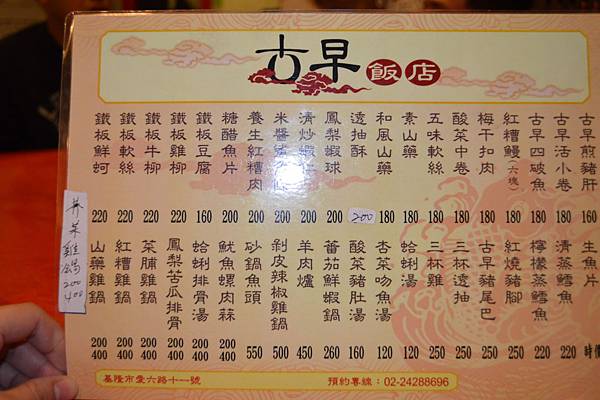 古早飯店
古早煎豬肝 160
古早活小卷 180
古早四破魚 180
紅糟鰻(六塊) 180
梅干扣肉 180
酸菜中卷 180
五味軟絲 180
素山藥 180
和風山藥 180
透抽酥 200
鳳梨蝦球 200
清炒蝦 200
米醬 200
養生紅糟肉 200
糖醋魚片 200
鐵板豆腐 160
鐵板雞柳 220
鐵板牛柳 220
鐵板軟絲 220
鐵板鮮蚵 220
生魚片 時價
清蒸鱈魚 220
檸檬鱈魚 220
紅燒豬腳 250
古早豬尾巴 250
三杯透抽 250
三杯雞 250
蛤蜊湯 120
杏菜吻魚湯 120
酸菜豬肚湯 160
蕃茄鮮蝦鍋 260
羊肉爐 450
剝皮辣椒雞鍋 500
砂鍋魚頭 550
魷魚螺肉蒜 200 400
蛤蜊排骨湯 200 400
鳳梨苦瓜排骨 200 400
菜脯雞鍋 200 400
紅糟雞鍋 200 400
山藥雞鍋 200 400
芥菜雞鍋 200 400
基隆市愛六路十一號
預約專線：02-24288696